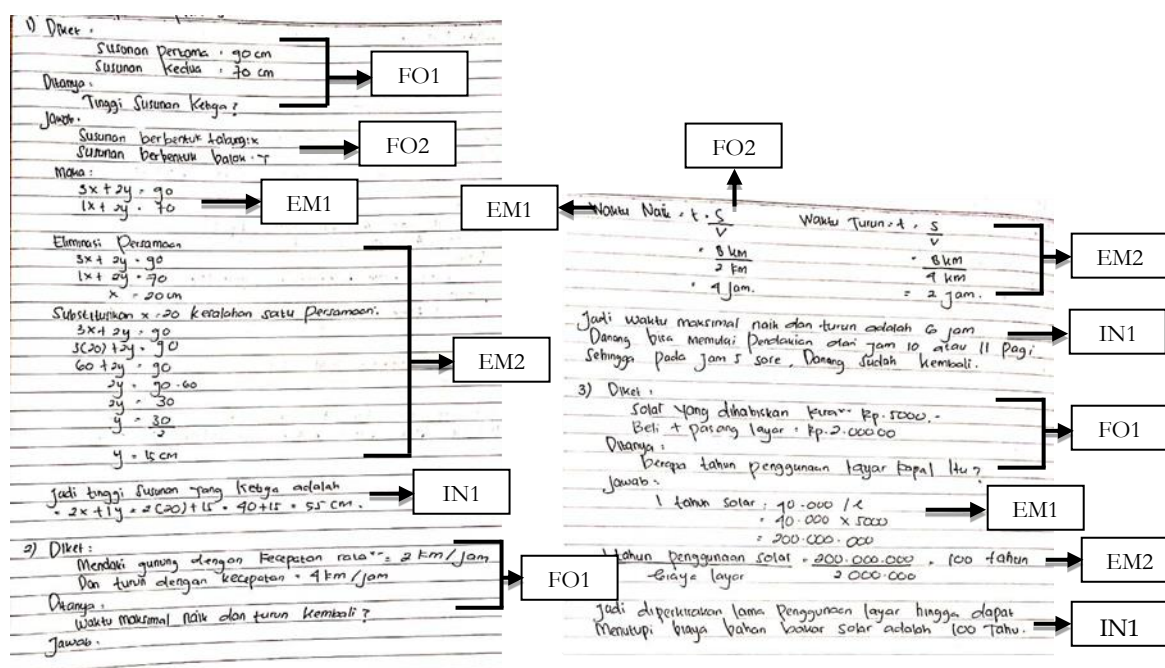 1) Diket :
Susunan pertama : 90 cm
Susunan kedua : 70 cm
FO1
Ditanya :
Tinggi Susunan Ketiga ?
Jawab :
Susunan berbentuk tabung : x
FO2
Susunan berbentuk balok : y
Maka :
3x + 2y = 90
EM1
1x + 2y = 70
Eliminasi Persamaan
3x + 2y = 90
1x + 2y = 70
x = 20 cm
Substitusikan x = 20 kesalahan satu Persamaan.
3x + 2y = 90
3(20) + 2y = 90
EM2
60 + 2y = 90
2y = 90 - 60
2y = 30
y = 30
2
y = 15 cm
Jadi tinggi Susunan yang ketiga adalah
IN1
= 2x + 1y = 2(20) + 15 = 40 + 15 = 55 cm.
2) Diket :
Mendaki gunung dengan kecepatan rata" = 2 km/jam
Dan turun dengan kecepatan = 4 km/jam
FO1
Ditanya :
Waktu maksimal naik dan turun kembali ?
Jawab :
FO2
EM1
Waktu Naik = t = S
V
Waktu Turun = t = S
V
= 8 km
2 km
= 8 km
4 km
EM2
= 4 Jam.
= 2 Jam.
Jadi waktu maksimal naik dan turun adalah 6 jam
IN1
Danang bisa memulai Pendakian dari jam 10 atau 11 pagi
Sehingga pada jam 5 sore, Danang sudah kembali.
3) Diket :
Solar yang dihabiskan Rp. 5000.-
Beli + pasang layar = Rp. 2.000000
FO1
Ditanya :
berapa tahun penggunaan layar kapal itu ?
Jawab :
1 tahun solar : 40.000 / l
EM1
= 40.000 x 5000
= 200.000.000
tahun penggunaan solar = 200.000.000 = 100 tahun
EM2
biaya layar 2000.000
Jadi diperkirakan lama Penggunaan layar hingga dapat
IN1
Menutupi biaya bahan bakar solar adalah 100 Tahu.